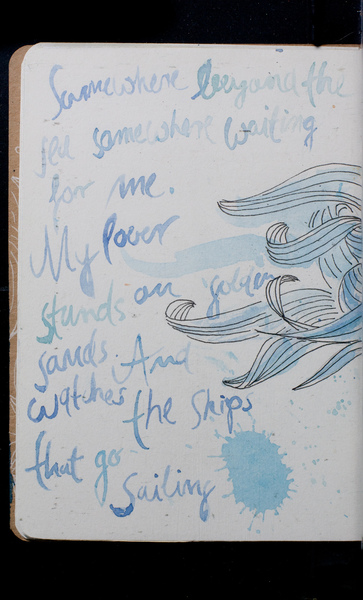 Somewhere beyond the
sea somewhere waiting
for me.
My lover
stands on golden
sands. And
watches the ships
that go
Sailing